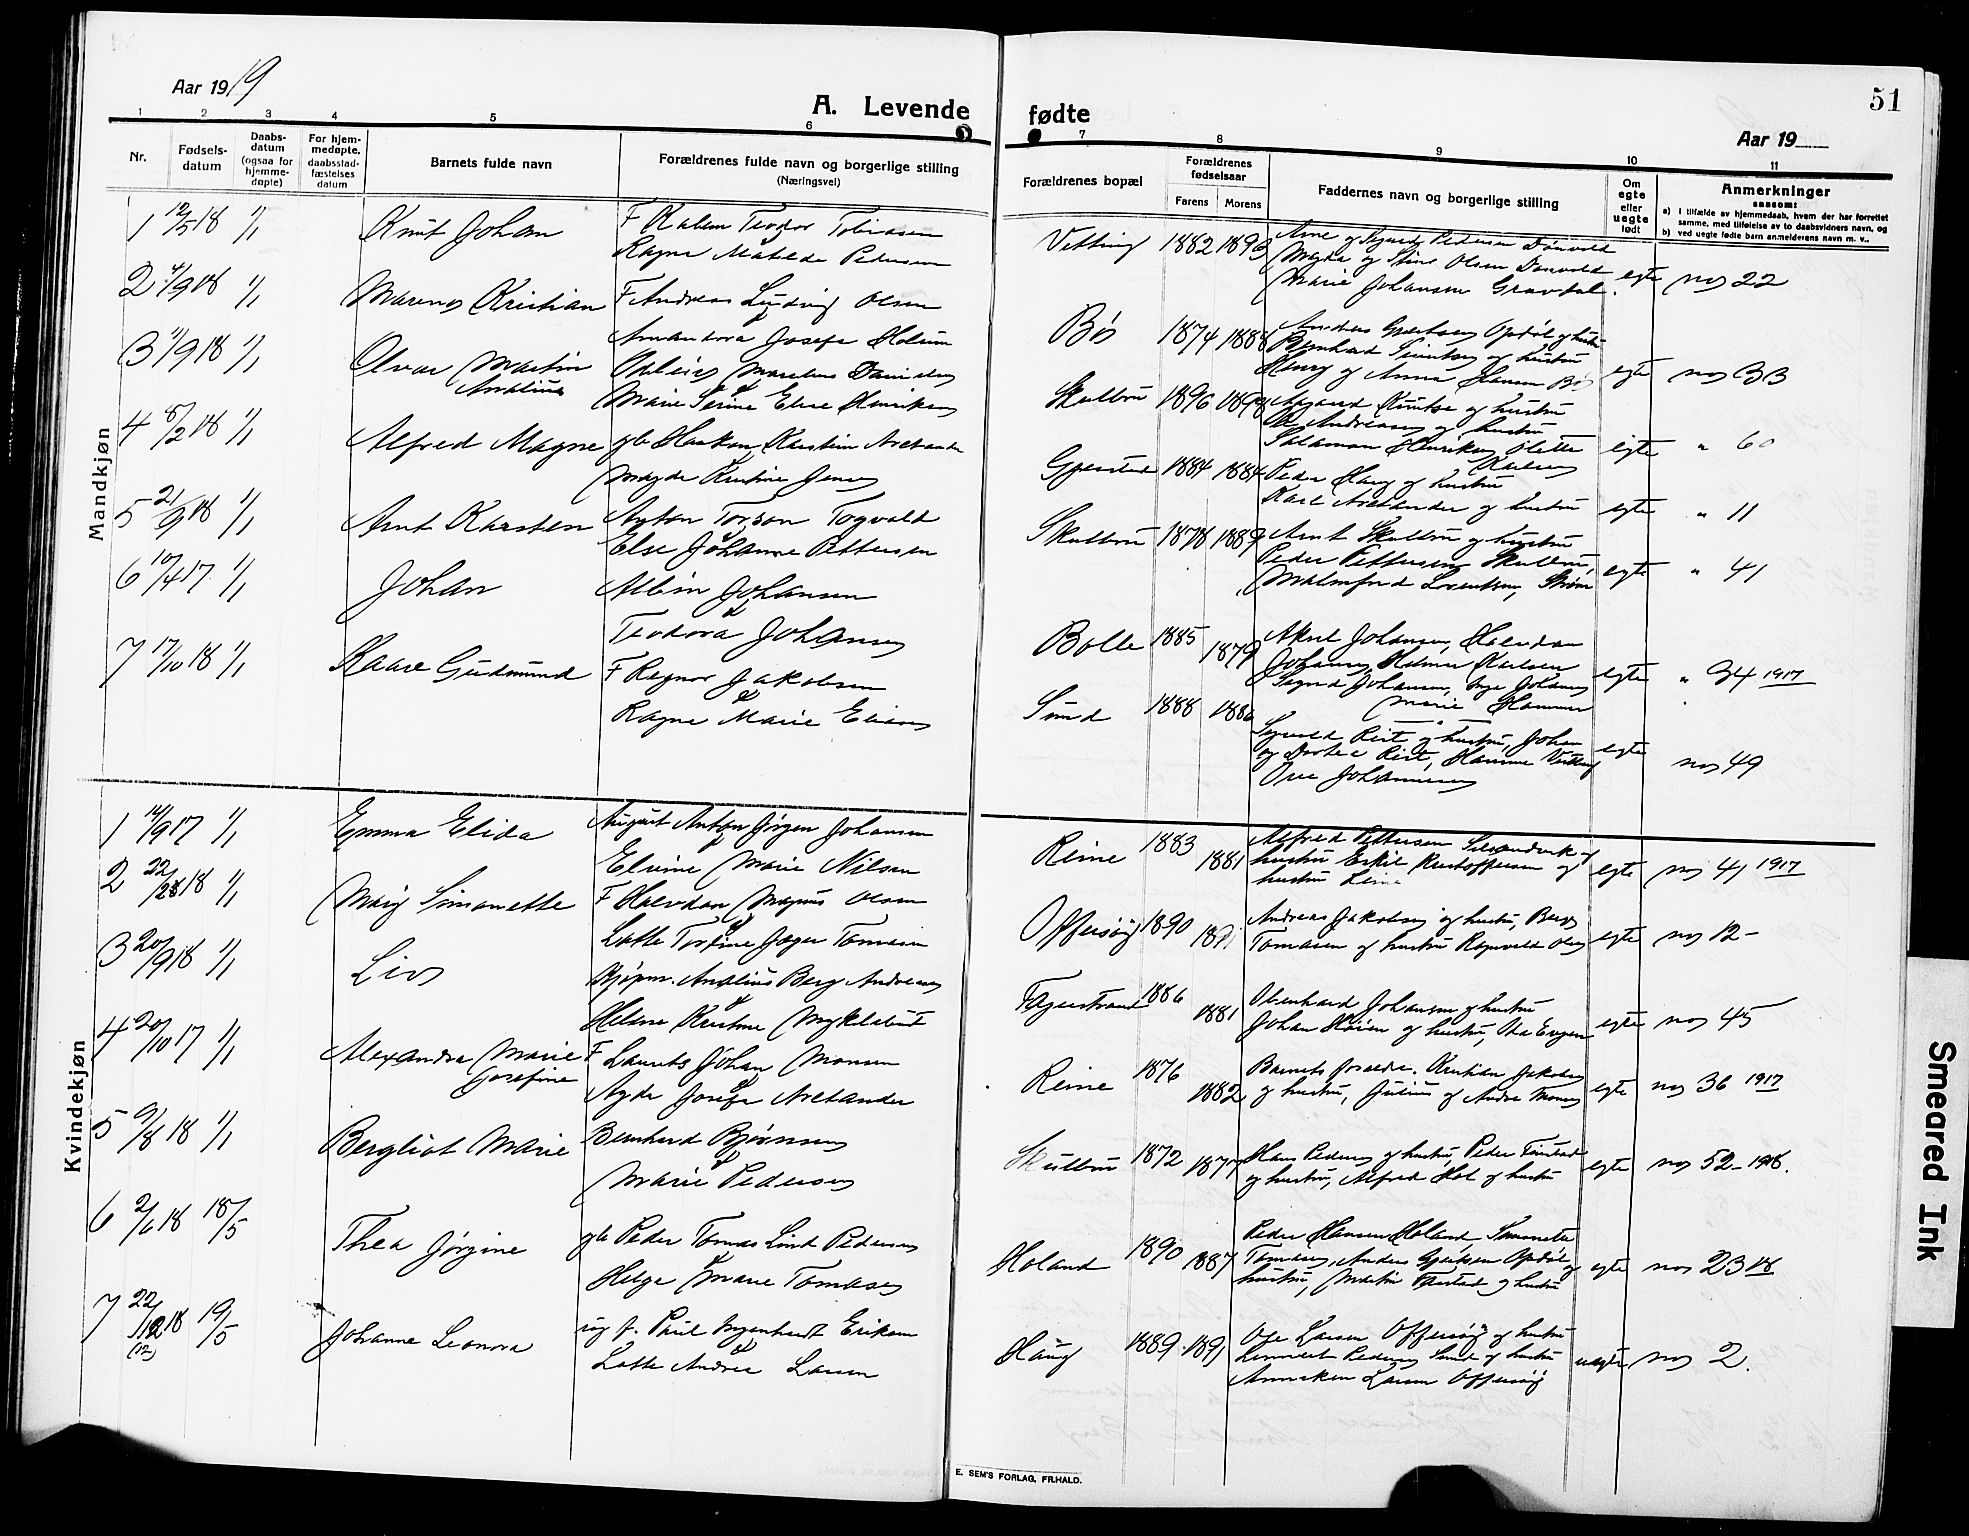 Aar 1919
A. Levende fødte
51
Aar 19
1 2 3 4 5 6 7 8 9 10 11
Nr.
Fødsels-
datum
Daabs-
datum
(ogsaa for
hjemme-
døpte)
For hjem-
medøpte,
daabsstad-
fæstelses
datum
Barnets fulde navn
Forældrenes fulde navn og borgerlige stilling
(Næringsvei)
Forældrenes bopæl
Forældrenes
fødselsaar
Farens Morens
Faddernes navn og borgerlige stilling
Om
egte
eller
uegte
født
Anmerkninger
saasom:
a) I tilfælde av hjemmedaab, hvem der har forrettet
samme, med tilføielse av to daabsvidners navn, og
b) ved uegte fødte barn anmelderens navn m. v..
Mandkjøn
1 12/5 18 1/1 Knut Johan F Kalem Teodor Tobiasen
Ragna Matilde Pedersen
Vetting 1882 1893
Arne og Sigurd Pedersen Dønvold
Magda og Stine Olsen Dønvold
Marie Johansen Gravdal. egte no 22
2 4/9 18 1/1 Marenus Kristian F Andreas Ludvig Olsen
Amandora Josefa Holum
Bø 1874 1888
Andreas Gjertsen Opdøl og hustru
Bernhard Simonsen og hustru
Henry og Anna Hansen Bø egte no 33
3 11/9 18 1/1 Olvar Martin
Analius
Marelius Danielsen
Marie Serine Elise Henriksen
Skulbru 1896 1898
Aagaard Knutsen og hustru
Andreasen og hustru
Salamon Henriksen
Karlsen egte " 60
4 8/2 18 1/1 Alfred Magne gb Haakon Karstein Arctander
Magda Kristine Jensen
Gjerstad 1884 1884
Peder Haug og hustru
Karl Arctander og hustru egte " 11
5 21/9 18 1/1 Arnt Karsten Torvald
Else Johanne Pettersen
Skulbru 1878 1889
Arnt Skulbru og hustru
Peder Pettersen Skulbru,
Malmfrid Lorentsen, Strøm egte " 41
6 10/4 17 1/1 Johan Albin Johansen
Teodora Johansen
Bolle 1885 1879
Johansen, Halvdan
Johansen, Helmer Karlsen
Sigrid Johansen, Inga Johansen
Marie Hammer egte " 34 1917
7 17/10 18 1/1 Kaare Gudmund F Ragnar Jakobsen
Ragna Marie Eliasen
Sund 1888 1886
Sigvald Reit og hustru, Johan
og Dortea Reit, Hanna Vetting
Ove Johannesen egte no 49
Kvindekjøn
1 14/9 17 1/1 Emma Elida August Anton Jørgen Johansen
Elvine Marie Nilsen
Reine 1883 1881
Alfred Pettersen og
hustru Eskil Kristoffersen og
hustru Leine egte no 41 1917
2 22/28 18 1/1 Maig Simonette F Halvdan Magnus Olsen
Lotte Torfine Jæger Tomasen
Offersøy 1890
Andreas Jakobsen og hustru, Berg
Tomasen og hustru Ragnvald Olsen egte no 12 -
3 20/9 18 1/1 Liv Kjøpm. Analius Berg Andreassen
Helene Kristine Myklebust
Fagerstrand 1886 1881
Johansen og hustru
Johan Steien og hustru, egte no 45
4 20/10 17 1/1 Alexandra Marie
Josefine F Laurits Johan Monsen
Agda Josefa Arctander
Reine 1876 1882
Barnets foreldre. Kristian Jakobsen
og hustru, Julius og Andrea Monsen egte no 36 1917
5 9/8 18 1/1 Bergliot Marie Bernhard Bjørnsen
Marie Pedersen
Skulbru 1872 1877
Hans Pedersen og hustru, Peder
og hustru, Alfred Hol og hustru egte no 52 - 1918.
6 2/6 18 18/5 Thea Jørgine gb Peder Tomas Lind Pedersen
Helga Marie Tomasen
Holand 1890 1887
Peder Hansen Holand Simonette
Tomasen, Anders Gjertsen Opdøl og
hustru, Martin og hustru egte no 23 18
7 22/12 18 19/5
(12)
Johanne Leonora ug f. Paul Ingenhardt Eriksen
Lotte Andrea Larsen
Haug 1889 1891
Ole Larsen Offersøy og hustru
Lennart Pedersen Sund og hustru
Anneken Larsen Offersøy uegte no 2.
E. SEM'S FORLAG, FR.HALD.
Smeared Ink